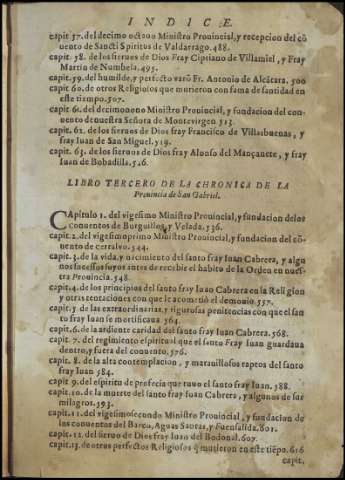 INDICE.
capit 57. del decimo octauo Ministro Prouincial, y recepcion del cõ
uento de Sancti Spiritus de Valdarrago. 488.
capit. 58. de los sieruos de Dios Fray Cipriano de Villamiel, y Fray
Martin de Numbela. 495.
capit. 59. del humilde, y perfecto varõ Fr. Antonio de Alcãtara. 500
capit 60. de otros Religiosos que murieron con fama de santidad en
este tiempo. 507.
capit. 61. del decimonono Ministro Prouincial, y fundacion del con
uento de nuestra Señora de Monteuirgen 513.
capit. 62. de los sieruos de Dios fray Francisco de Villasbuenas, y
fray Iuan de San Miguel. 519.
capit. 63. de los sieruos de Dios fray Alonso del Mançanete, y fray
Iuan de Bobadilla. 526.
LIBRO TERCERO DE LA CHRONICA DE LA
Prouincia de San Gabriel.
CApitulo 1. del vigesimo Ministro Prouincial, y fundacion de los
conuentos de Burguillos, y Velada. 536.
capit. 2. del vigesimoprimo Ministro Prouincial, y fundacion del cõ-
uento de cerraluo. 544.
capit. 3. de la vida, y nacimiento del santo fray Iuan Cabrera, y algu
nos sucessos suyos antes de recebir el habito de la Orden en nues-
tra Prouincia. 548.
capit. 4. de los principios del santo fray Iuan Cabrera en la Religion
y otras tentaciones con que le acometió el demonio. 557.
capit. 5 de las extraordinarias, y rigurosas penitencias con que el san
to fray Iuan se mortificaua 564.
capit. 6. de la ardiente caridad del santo fray Iuan Cabrera. 568.
capit. 7. del regimiento espiritual que el santo Fray Iuan guardaua
dentro, y fuera del conuento. 576.
capit. 8. de la alta contemplacion, y marauillosos raptos del santo
fray Iuan 584.
capit 9. del espiritu de profecia que tuuo el santo fray Iuan. 588.
capit. 10. de la muerte del santo fray Iuan Cabrera, y algunos de sus
milagros. 593.
capit. 11. del vigesimosecundo Ministro Prouincial, y fundacion de
los conuentos del Barco, Aguas Santas, y Fuensalida. 601.
capit. 12. del sieruo de Dios fray Iuan del Bodonal. 607.
capit. 13. de otros perfectos Religiosos q̃ murieron en este tiẽpo. 616
capit.